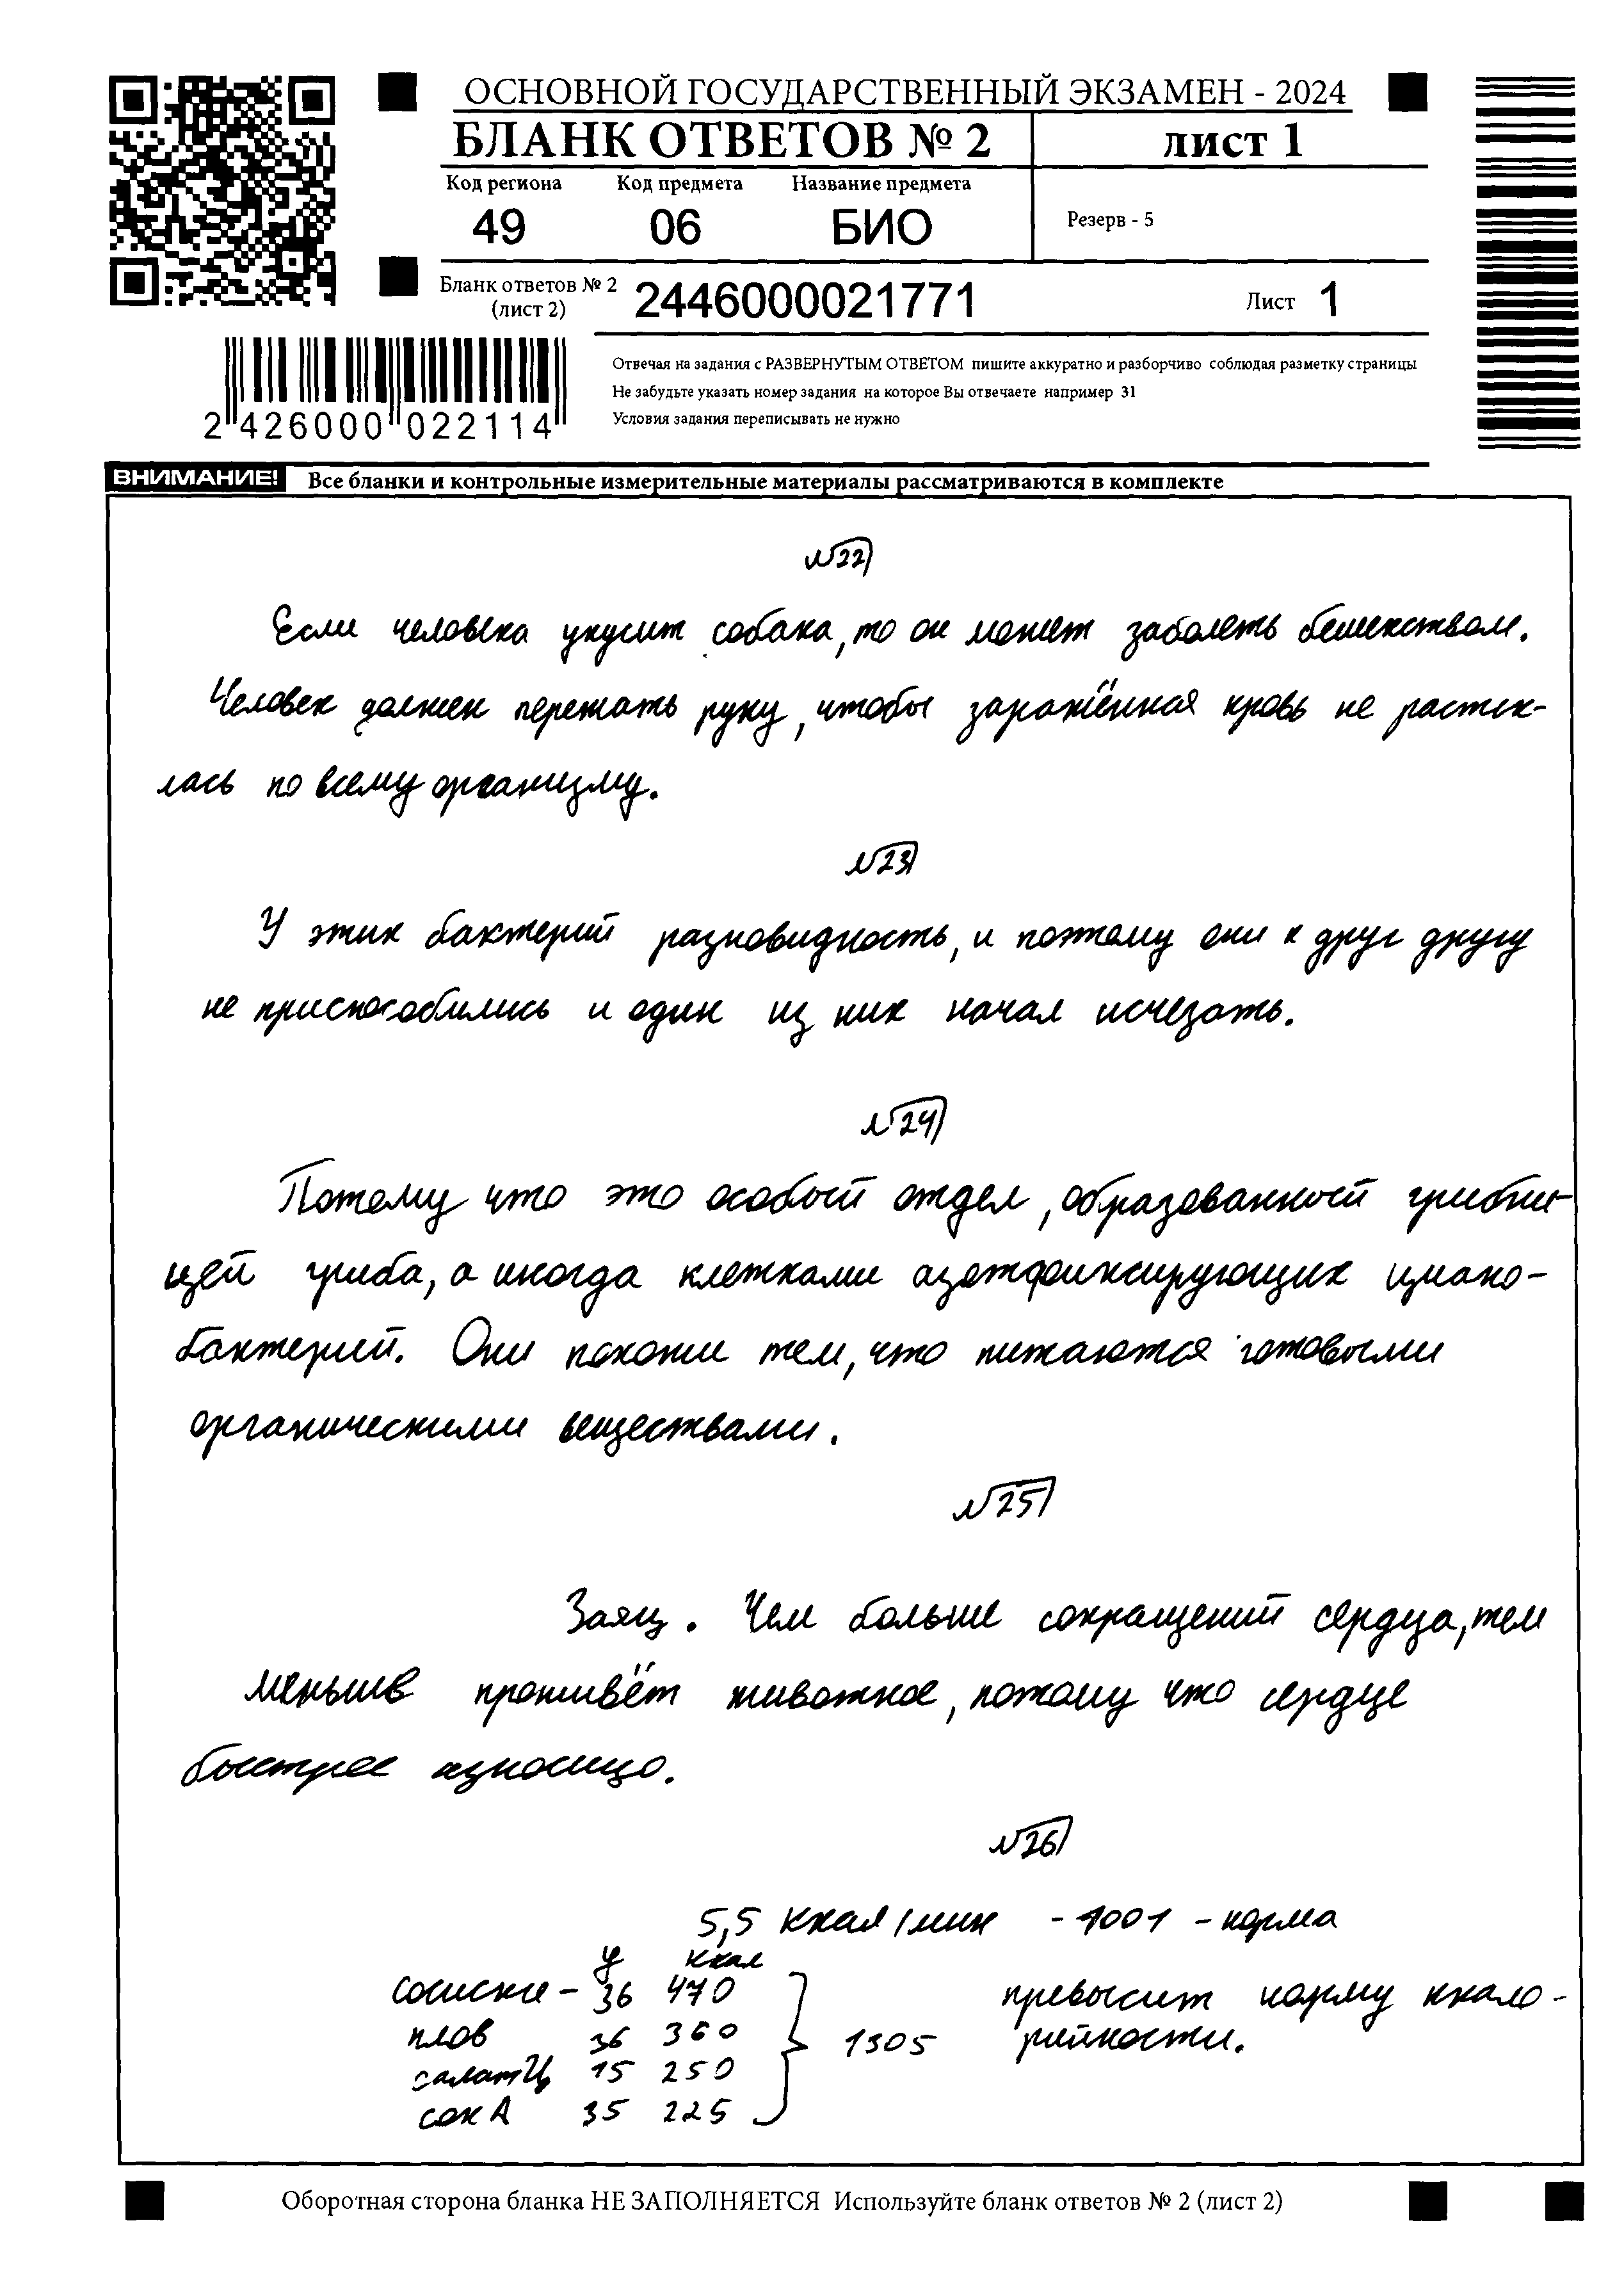 ОСНОВНОЙ ГОСУДАРСТВЕННЫЙ ЭКЗАМЕН - 2024
БЛАНК ОТВЕТОВ № 2
лист 1
Код региона Код предмета Название предмета
49 06 БИО
Резерв - 5
Бланк ответов № 2
(лист 2)
2446000021771
Лист 1
2 426000 022114
Отвечая на задания с РАЗВЕРНУТЫМ ОТВЕТОМ пишите аккуратно и разборчиво соблюдая разметку страницы
Не забудьте указать номер задания на которое Вы отвечаете например 31
Условия задания переписывать не нужно
ВНИМАНИЕ! Все бланки и контрольные измерительные материалы рассматриваются в комплекте
№22
Если человека укусит собака, то он может заболеть бешенством.
Человек должен пережать руку, чтобы заражённая кровь не растек-
лась по всему организму.
№23
У этих бактерий разновидность, и поэтому они к друг другу
не приспособились и один из них начал исчезать.
№24
Потому что это особый отдел, образованной грибни-
цей гриба, а иногда клетками азотфиксирующих циано-
бактерий. Они похожи тем, что питаются готовыми
органическими веществами.
№25
Заяц. Чем больше сокращений сердца, тем
меньше проживёт животное, потому что сердце
быстрее
№26
5,5 ккал/мин - 1001 - норма
У ккал
сосиски - 36 470
плов 36 360
салат Ц 15 250
сок А 35 225
1305
превысит норму ккало-
рийности.
Оборотная сторона бланка НЕ ЗАПОЛНЯЕТСЯ Используйте бланк ответов № 2 (лист 2)